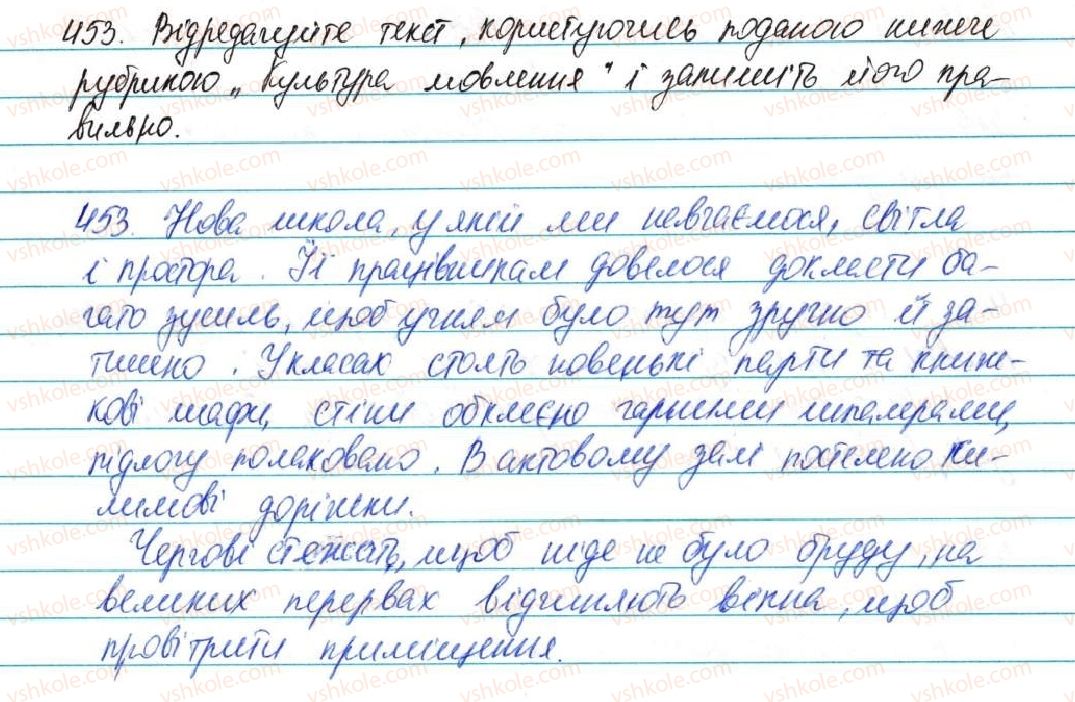 453. Відредагуйте текст, користуючись поданою нижче
рубрикою „Культура мовлення" і запишіть його пра-
вильно.
453. Нова школа, у якій ми навчаємося, світла
і простора. Її працівникам довелося докласти ба-
гато зусиль, щоб учням було тут зручно й за-
тишно. У класах стоять новенькі парти та книж-
кові шафи, стіни обклеєно гарними шпалерами,
підлогу полаковано. В актовому залі постелено ки-
лимові доріжки.
Чергові стежать, щоб ніде не було бруду, на
великих перервах відчиняють вікна, щоб
провітрити приміщення.